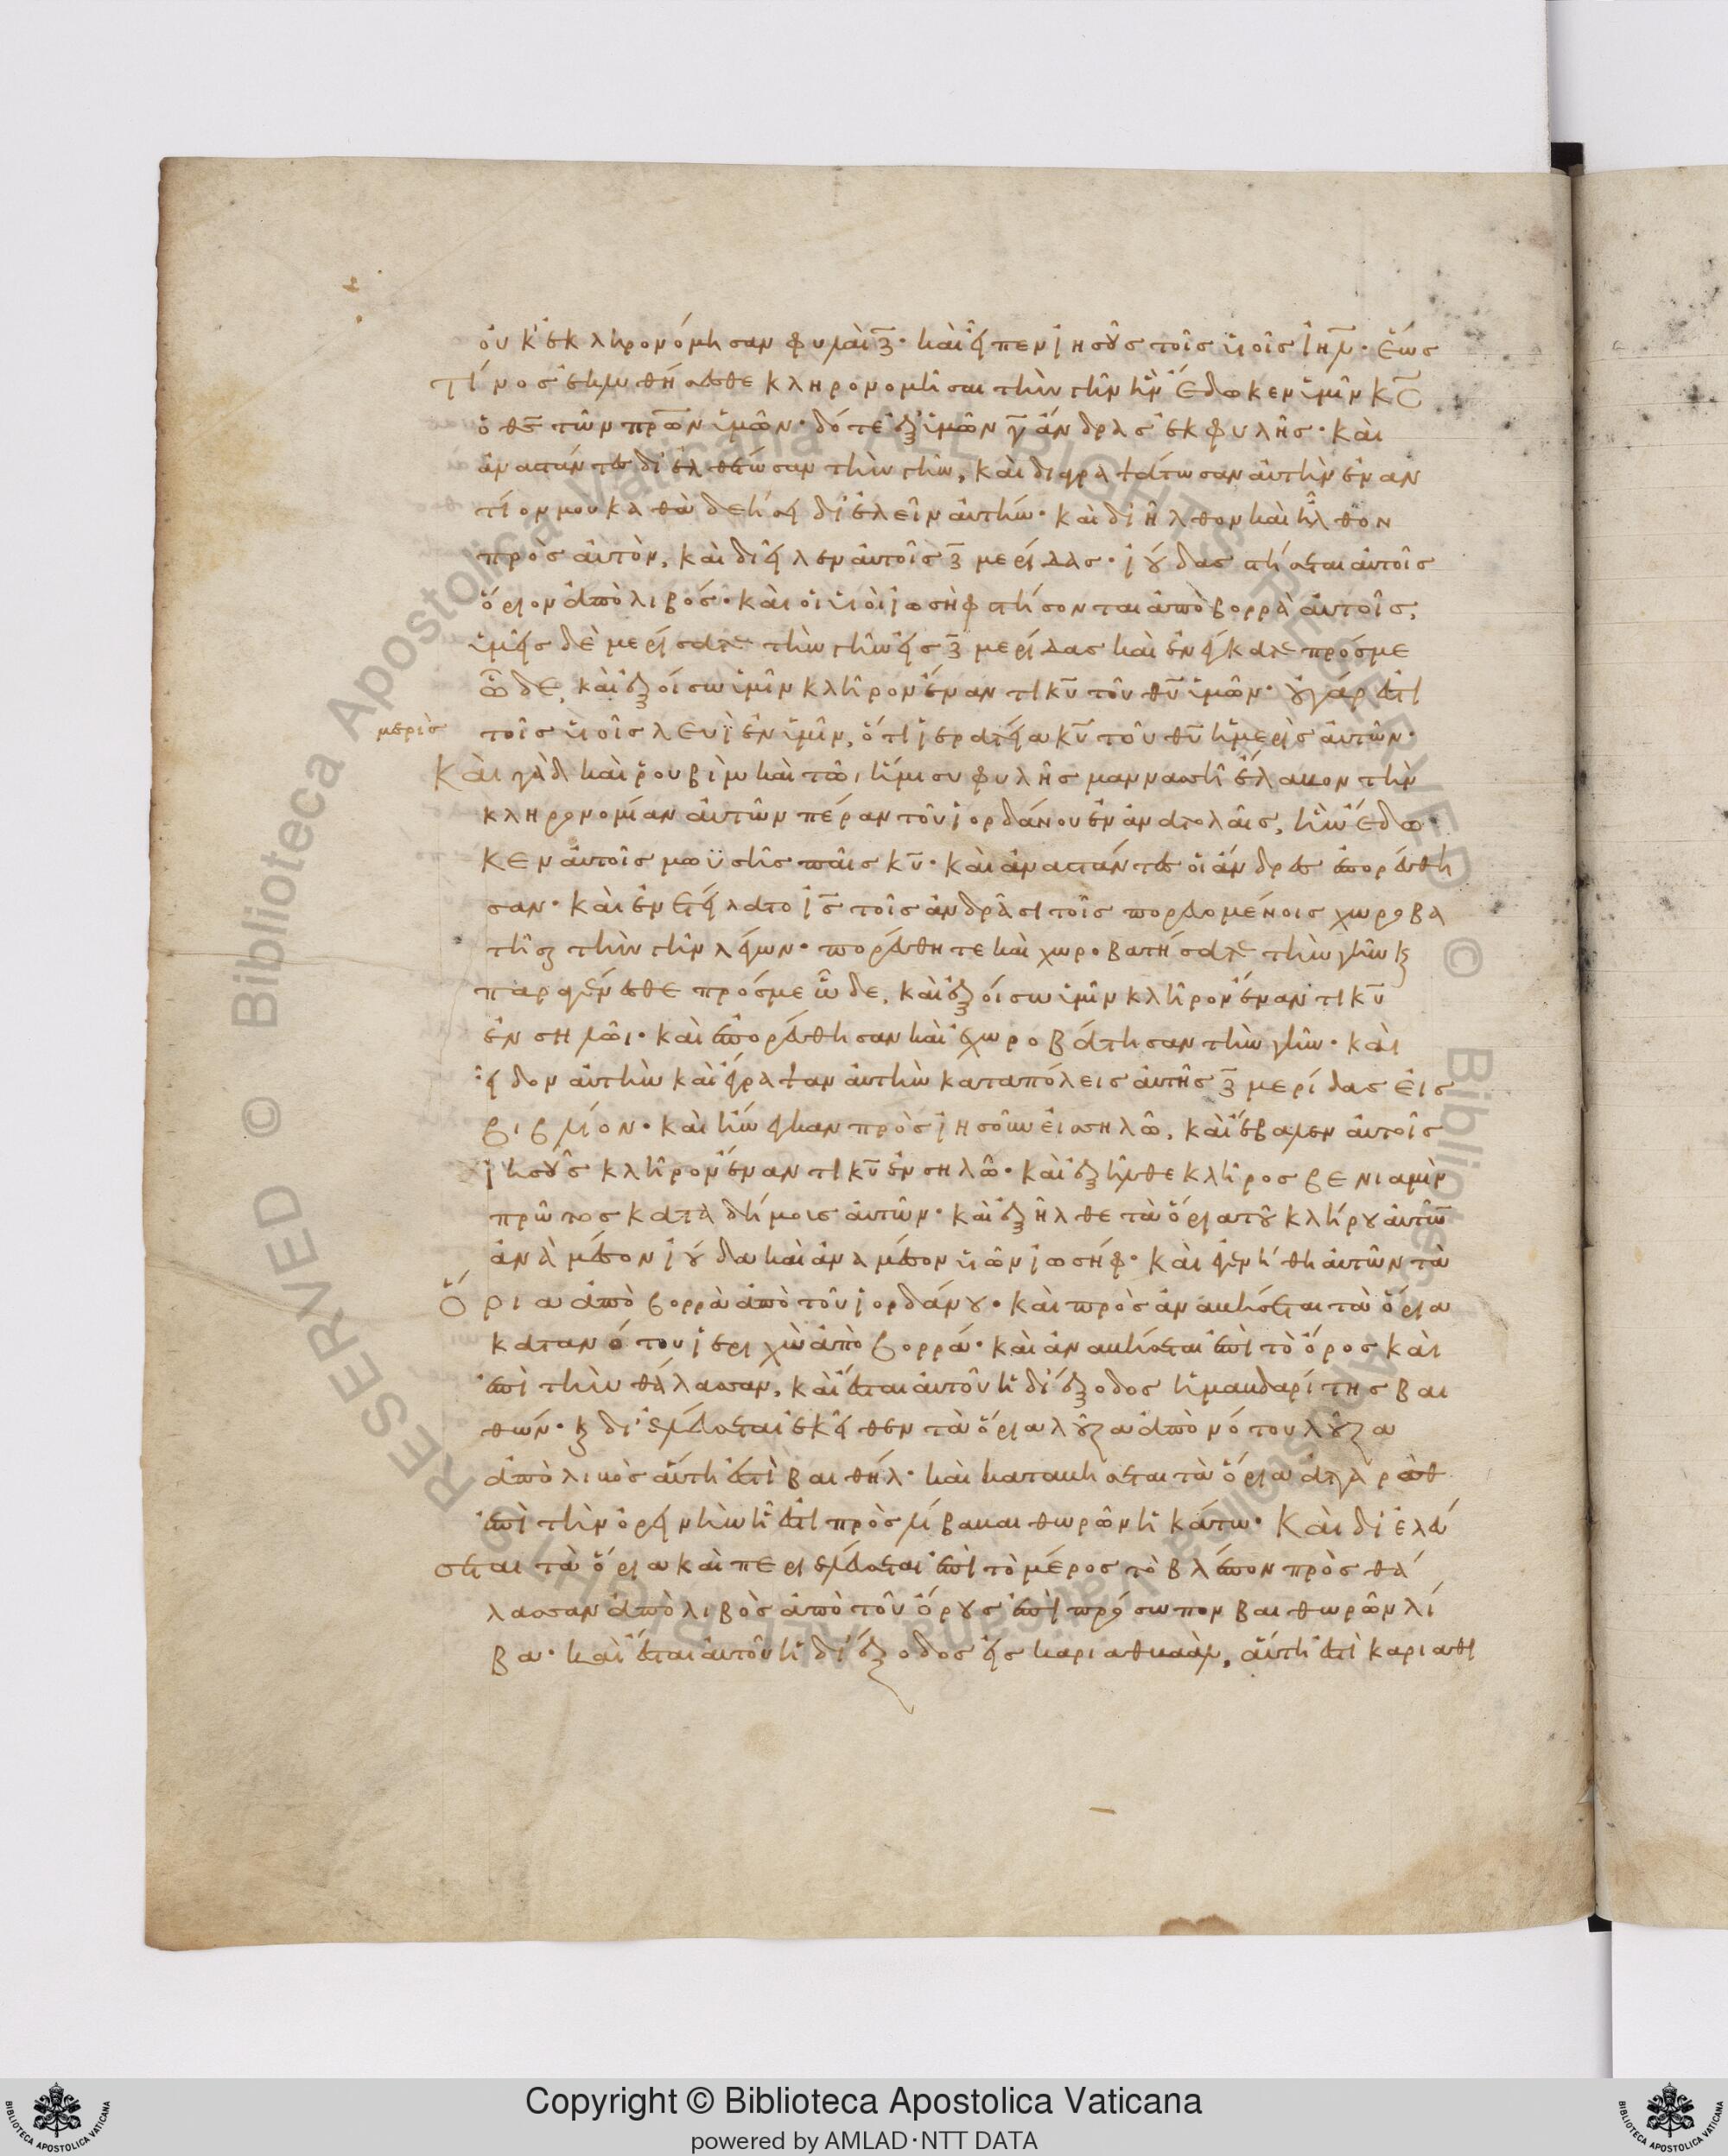 οὐκ ἐκληρονόμησαν φυλαὶ ζ̅· καὶ εἶπεν ἰησοῦς τοῖς υἱοῖς ιη̅λ· ἕως
τίνος ἐκλυθήσεσθε κληρονομῆσαι τὴν γῆν ἣν ἔδωκεν ὑμῖν κ̅ς
ὁ θ̅ς τῶν πρ̅ων ὑμῶν· δότε ἐξ ὑμῶν γ̅ ἄνδρας ἐκ φυλῆς· καὶ
ἀναστάντες διελθέτωσαν τὴν γῆν, καὶ διαγραψάτωσαν αὐτὴν ἐναν
τίον μου καθὰ δεήσει διελεῖν αὐτήν· καὶ διῆλθον καὶ ἦλθον
πρὸς αὐτὸν, καὶ διεῖλεν αὐτοῖς ζ̅ μερίδας· ἰούδας στήσεται αὐτοῖς
ὅριον ἀπὸ λιβός· καὶ οἱ υἱοὶ ἰωσὴφ στήσονται ἀπὸ βορρὰ αὐτοῖς,
ὑμεῖς δὲ μερίσατε τὴν γῆν εἰς ζ̅ μερίδας καὶ ἐνείκατε πρός με
ὧδε, καὶ ἐξοίσω ὑμῖν κλῆρον ἔναντι κ̅υ τοῦ θ̅υ ὑμῶν· οὐ γάρ ἐστι
μερὶς τοῖς υἱοῖς λευῒ ἐν ὑμῖν, ὅτι ἱερατεία κ̅υ τοῦ θ̅υ ἡ μερὶς αὐτῶν·
Καὶ γὰδ καὶ ῥουβὶμ καὶ τῶι ἥμισυ φυλῆς μαννασσῆ ἔλαβον τὴν
κληρονομίαν αὐτῶν πέραν τοῦ ἰορδάνου ἐν ἀνατολαῖς, ἣν ἔδω
κεν αὐτοῖς μωϋσῆς παῖς κ̅υ· καὶ ἀναστάντες οἱ ἄνδρες ἐπορεύθη
σαν· καὶ ἐνετείλατο ι̅ς τοῖς ἀνδράσι τοῖς πορευομένοις χωροβα
τῆσαι τὴν γῆν λέγων· πορεύθητε καὶ χωροβατήσατε τὴν γῆν καὶ
παραγένεσθε πρός με ὧδε, καὶ ἐξοίσω ὑμῖν κλῆρον ἔναντι κ̅υ
ἐν σηλῶι· καὶ ἐπορεύθησαν καὶ ἐχωροβάτησαν τὴν γῆν· καὶ
εἶδον αὐτὴν καὶ ἔγραψαν αὐτὴν κατὰ πόλεις αὐτῆς ζ̅ μερίδας εἰς
βιβλίον· καὶ ἤνεγκαν πρὸς ἰησοῦν εἰς σηλῶ, καὶ ἔβαλεν αὐτοῖς
ἰησοῦς κλῆρον ἔναντι κ̅υ ἐν σηλῶ· καὶ ἐξῆλθε κλῆρος βενιαμὶν
πρῶτος κατὰ δήμοις αὐτῶν· καὶ ἐξῆλθε τὰ ὅρια τοῦ κλήρου αὐτῶν
ἀνὰ μέσον ἰούδα καὶ ἀνὰ μέσον υἱῶν ἰωσήφ· καὶ ἐγενήθη αὐτῶν τὰ
ὅρια ἀπὸ βορρὰ ἀπὸ τοῦ ἰορδάνου· καὶ προσαναβήσεται τὰ ὅρια
κατὰ νότου ἱεριχὼ ἀπὸ βορρά· καὶ ἀναβήσεται ἐπὶ τὸ ὄρος καὶ
ἐπὶ τὴν θάλασσαν, καὶ ἔσται αὐτοῦ ἡ διέξοδος ἡ μαβδαρίτης βαι
θών· καὶ διελεύσεται ἐκεῖθεν τὰ ὅρια λοῦζα ἀπὸ νότου λοῦζα
ἀπὸ λιβὸς αὕτη ἐστὶ βαιθήλ· καὶ καταβήσεται τὰ ὅρια ἀταρὼθ
ἐπὶ τὴν ὀρεινὴν ἥ ἐστι πρὸς λίβα βαιθωρῶν ἡ κάτω· Καὶ διελεύ
σεται τὰ ὅρια καὶ περιελεύσεται ἐπὶ τὸ μέρος τὸ βλέπον πρὸς θά
λασσαν ἀπὸ λιβὸς ἀπὸ τοῦ ὄρους ἐπὶ πρόσωπον βαιθωρῶν λί
βα· καὶ ἔσται αὐτοῦ ἡ διέξοδος εἰς καριαθβαάλ, αὕτη ἐστὶ καριαθι
Copyright © Biblioteca Apostolica Vaticana
powered by AMLAD·NTT DATA